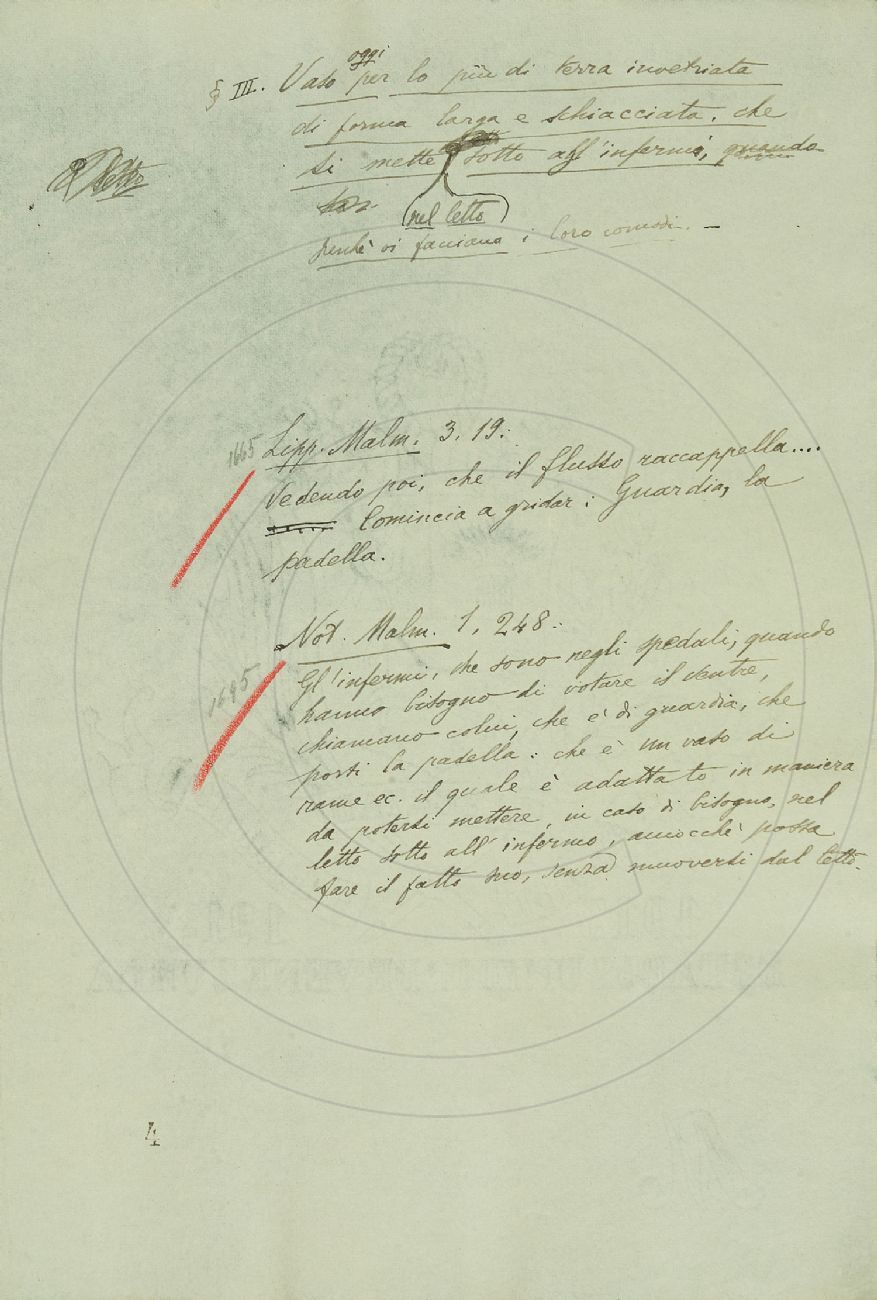 oggi
§ III. Vaso per lo più di terra invetriata
di forma larga e schiacciata, che
si mette sotto agl'infermi, quando
nel letto
perchè vi facciano i loro comodi. —
1665 Lipp. Malm. 3. 19:
Vedendo poi, che il flusso raccappella....
Comincia a gridar: Guardia, la
padella.
Not. Malm. 1. 248:
1695 Gl'infermi, che sono negli spedali, quando
hanno bisogno di votare il ventre,
chiamano colui, che è di guardia, che
porti la padella: che è un vaso di
rame ec. il quale è adattato in maniera
da potersi mettere, in caso di bisogno, nel
letto sotto all'infermo, acciocchè possa
fare il fatto suo, senza muoversi dal letto.
4